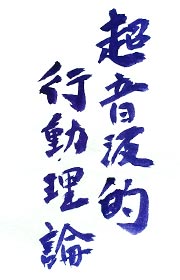 超音波的
行動理論